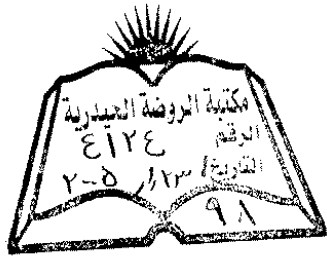 مكتبة الروضة الحيدرية
الرقم ٤١٢٤
التاريخ/
٩٨